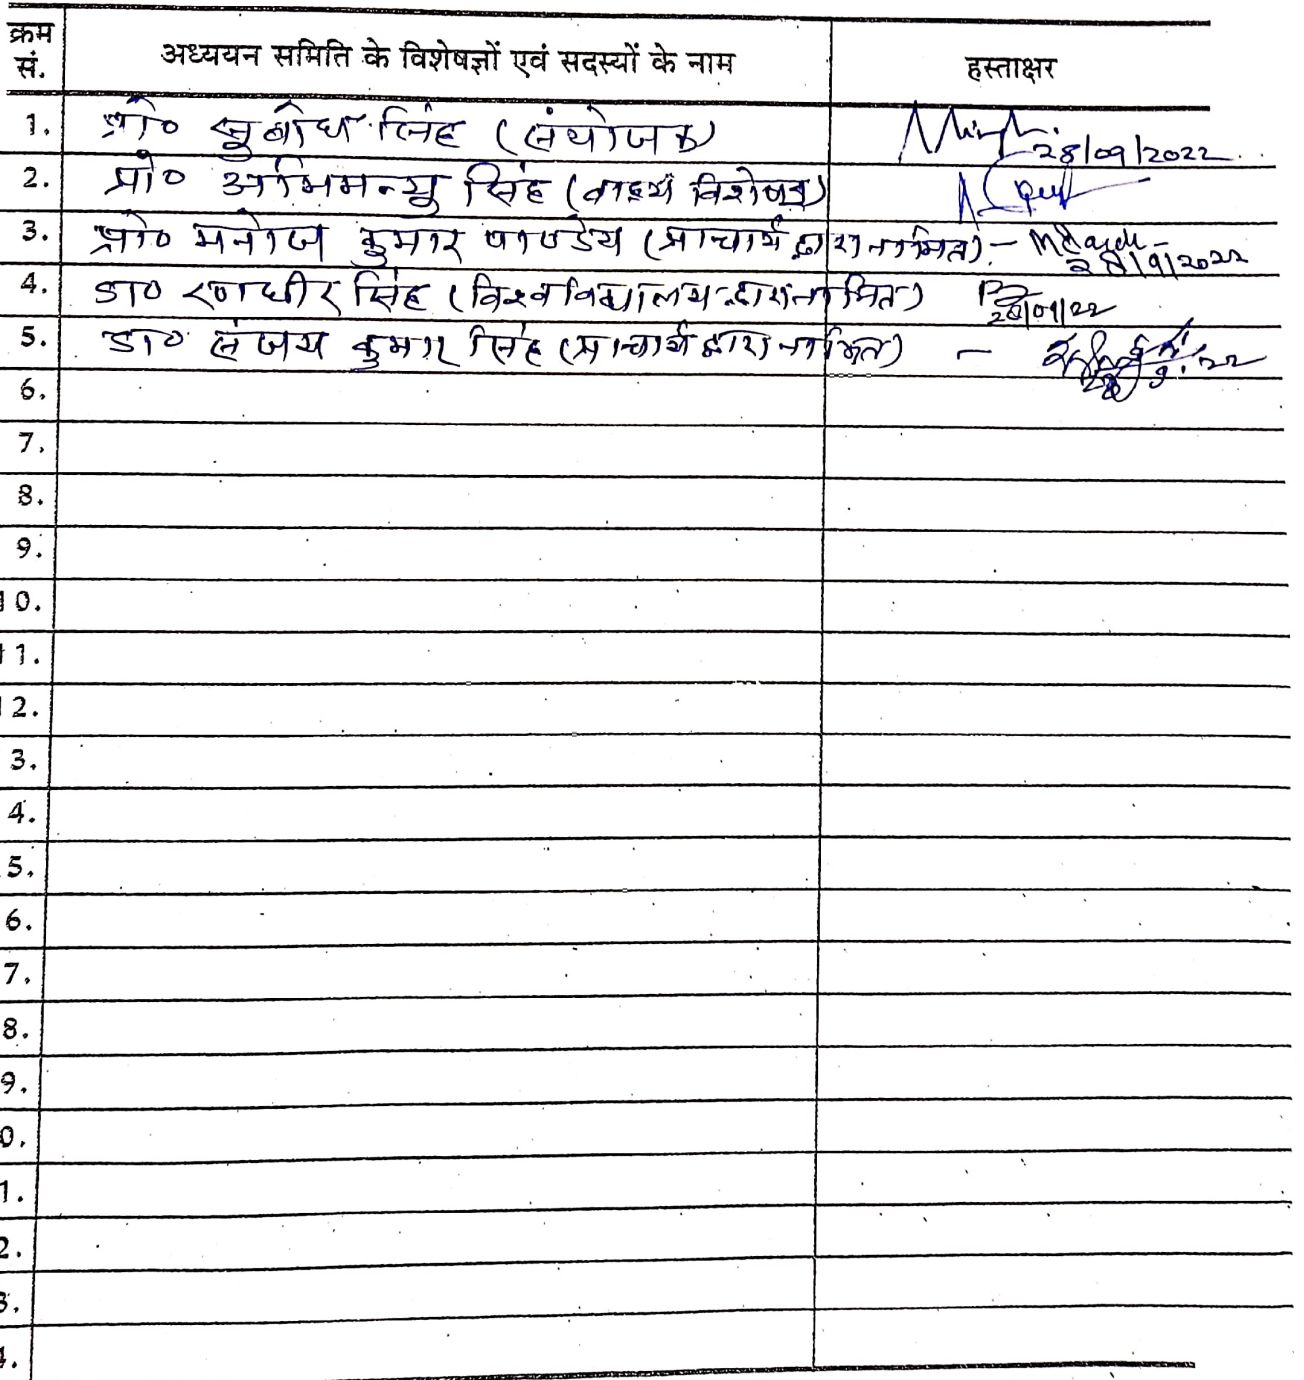 क्रम सं. अध्ययन समिति के विशेषज्ञों एवं सदस्यों के नाम हस्ताक्षर
1. प्रो० सुबोध सिंह (संयोजक) 28/09/2022
2. प्रो० अभिमन्यु सिंह (वाह्य विशेषज्ञ)
3. प्रो० मनोज कुमार पाण्डेय (प्राचार्य द्वारा नामित) - 28/9/2022
4. डा० रणधीर सिंह (विश्वविद्यालय द्वारा नामित) 28/09/22
5. डा० संजय कुमार सिंह (प्राचार्य द्वारा नामित) -
6.
7.
8.
9.
10.
11.
12.
3.
4.
5.
6.
7.
8.
9.
0.
1.
2.
3.
4.